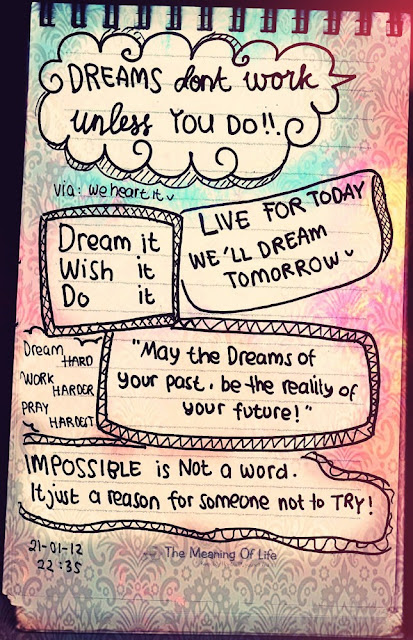 DREAMS dont work
unless YOU DO!!.
via: weheartit
Dream it
Wish it
Do it
LIVE FOR TODAY
WE'LL DREAM
TOMORROW
Dream
HARD
WORK
HARDER
PRAY
HARDEST
"May the Dreams of
your past, be the reality of
your future!"
IMPOSSIBLE is Not a word.
It just a reason for someone not to TRY!
21-01-12
22:35
The Meaning Of Life